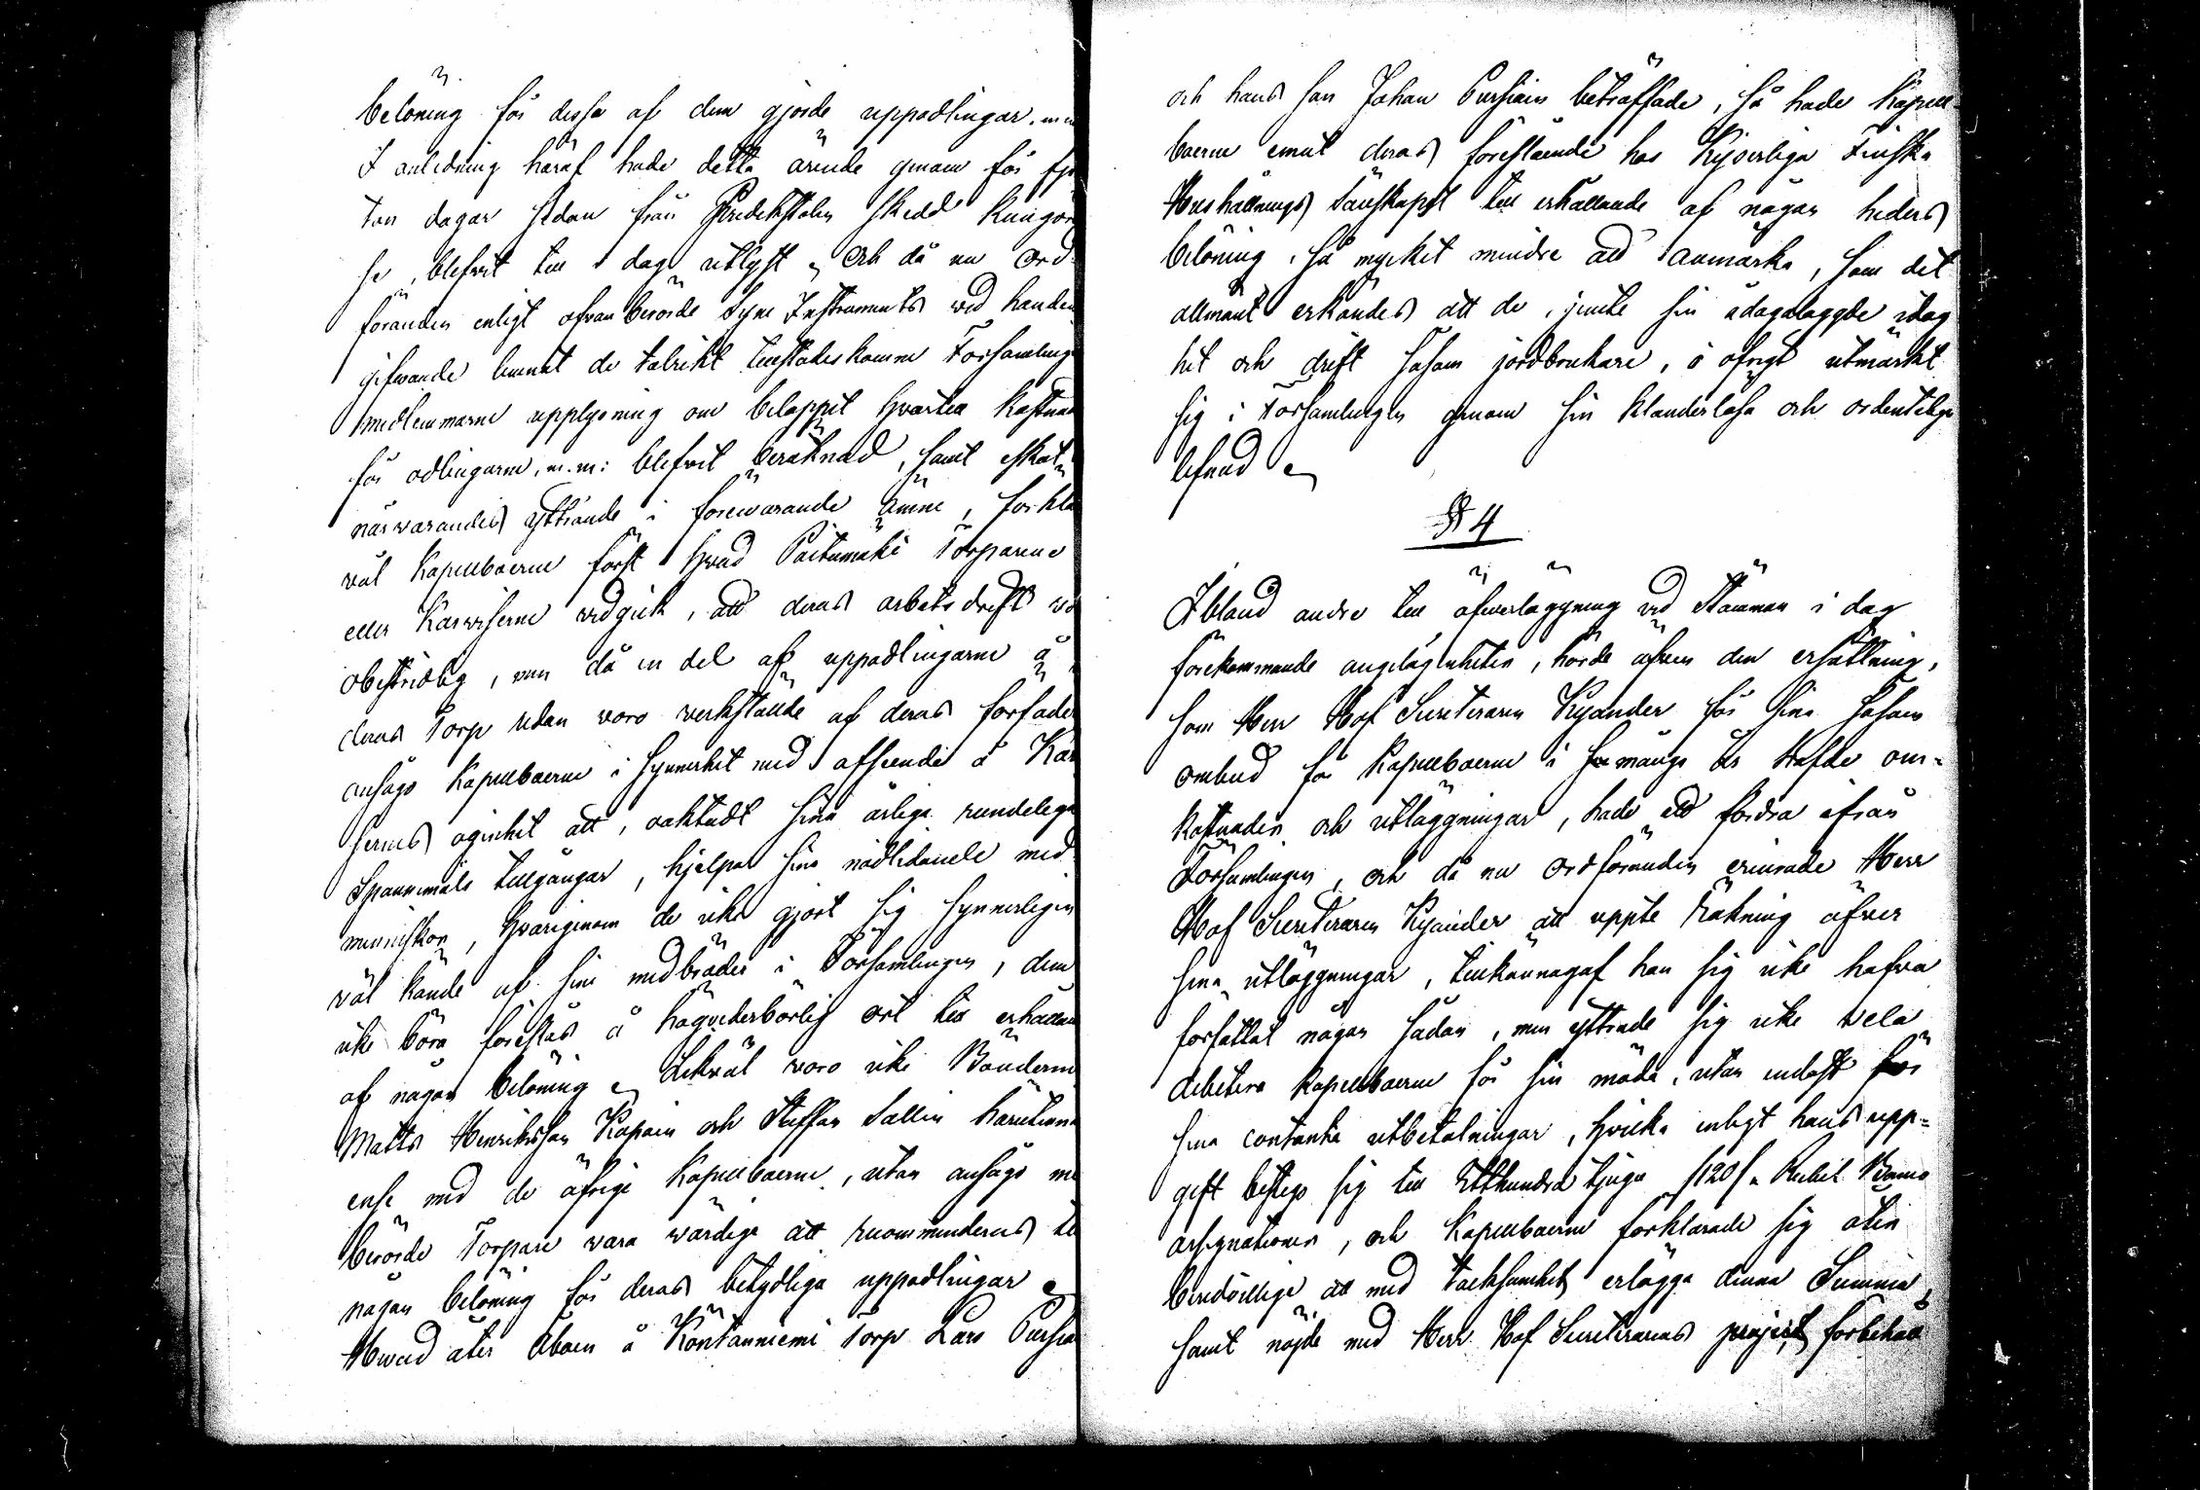 belöning för dessa af dem gjorde uppodlingar. m.m
I anledning häraf hade detta ärende genom för fjo
ton dagar sedan från Predikstolen skedd kungör
se, blefvit till i dag utlyst, och då nu Ord
föranden enligt ofvanberörde Syne Instruments vid handen
gifvande lemnat de talrikt tillstädeskomne Församlings
medlemmarne upplysning om beloppet hvartill kostnad
för odlingarne, m.m: blefvit beräknad, samt eskat
närvarandes yttrande i förevarande ämne, förkla
väl Kapellboerne först hvad Paitamäki Torparene
eller Karviserne vidgick, att deras arbetsdrift va
obestridlig, men då en del af uppodlingarne å
deras Torp redan voro verkstälde af deras förfäder
ansågo Kapellboerne i synnerhet med afseende å Kar
sernes ogenhet att, oaktadt sina årliga rundeliga
Spannemåls tillgångar, hjelpa sina nödlidande med
menniskor, hvarigenom de icke gjort sig synnerligen
väl kände af sine medbröder i Församlingen, dem
icke böra föreslås å högvederbörlig ort till erhållan
af någon belöning. Likväl voro icke Bönderne
Matts Henriksson Kapain och Staffan Sallin härutinna
ense med de öfrige Kapellboerne, utan ansågo me
berörde Torpare vara värdige att recommenderas til
någon belöning för deras betydliga uppodlingar
Hvad åter Åboen å Kontanniemi Torp Lars Pursia
och hans son Johan Pursiain beträffade, så hade Kapell
boerne emot deras föreslående hos Kejserliga Finska
Hushållnings Sällskapet till erhållande af någon heders
belöning, så mycket mindre att anmärka, som det
allmänt erkändes att de, jemte sin ådagalaggde idog
het och drift såsom jordbrukare, i öfrigt utmärkt
sig i Församlingen genom sin klanderlösa och ordentliga
lefnad
§ 4
Ibland andra till öfverläggning vid Stämman i dag
förekommande angelägenheter, hörde äfven den ersättning,
som Herr Hof Secreteraren Kyander för sina såsom
ombud för Kapellboerne i många år hafde om=
kostnader och utläggningar, hade att fordra ifrån
Församlingen, och då nu Ordföranden erinrade Herr
Hof Secreteraren Kyander att uppte Räkning öfver
sina utläggningar, tillkännagaf han sig icke hafva
författat någon sådan, men yttrade sig icke vela
debitera Kapellboerne för sin möda, utan endast för
sina contanta utbetalningar, hvilka enligt hans upp=
gift bestego sig till Etthundra tjugu /120/. Rubel Banco
assignationer, och Kapellboerne förklarade sig äfven
benvillige att med tacksamhet erlägga denna Summa,
samt nöjde med Herr Hof Secreterarens project förbehöll